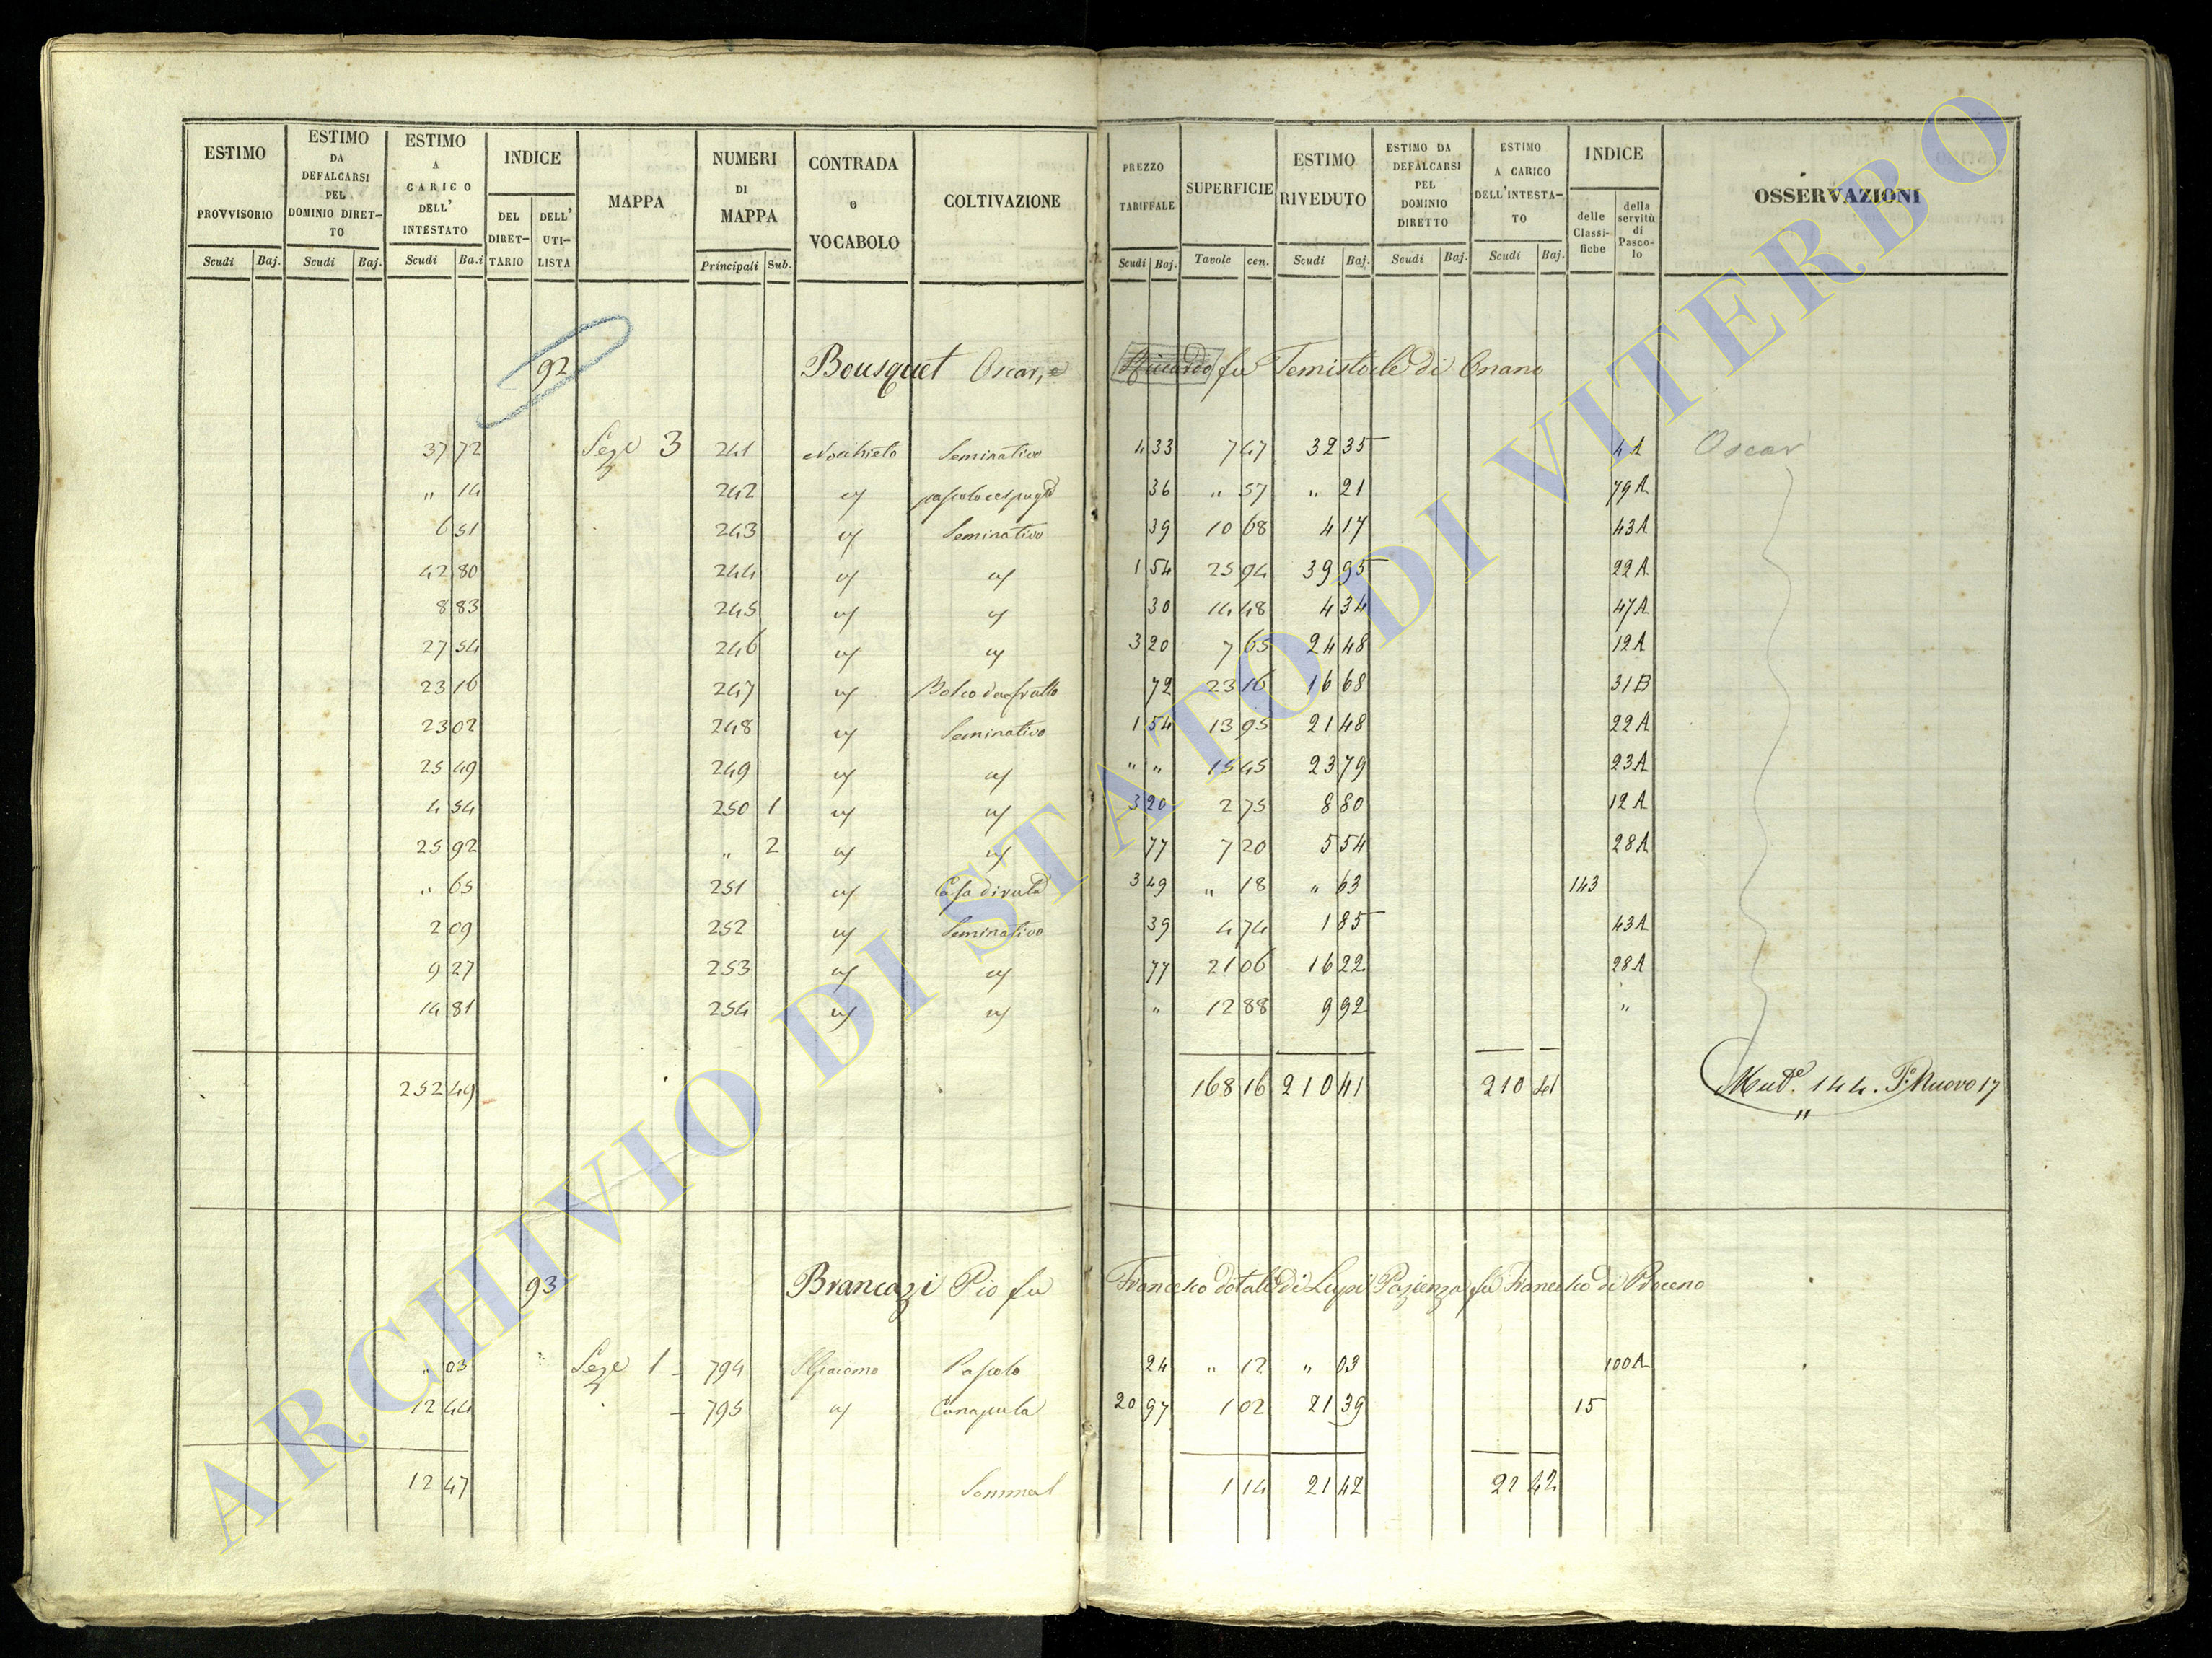 ESTIMO PROVVISORIO | ESTIMO DA DEFALCARSI PEL DOMINIO DIRETTO | ESTIMO A CARICO DELL' INTESTATO | INDICE | MAPPA | NUMERI DI MAPPA | CONTRADA o VOCABOLO | COLTIVAZIONE | PREZZO TARIFFALE | SUPERFICIE | ESTIMO RIVEDUTO | ESTIMO DA DEFALCARSI PEL DOMINIO DIRETTO | ESTIMO A CARICO DELL'INTESTATO | INDICE | OSSERVAZIONI
DEL DIRETTARIO | DELL' UTILISTA | delle Classifiche | della servitù di Pascolo
Scudi | Baj. | Scudi | Baj. | Scudi | Ba.i | Principali | Sub. | Scudi | Baj. | Tavole | cen. | Scudi | Baj. | Scudi | Baj. | Scudi | Baj.
92 Bousquet Oscar, e fu Temistocle di Onano
37 72 | Seze 3 | 241 | Nocchieto | Seminativo | 4 33 | 7 47 | 32 35 | 4A | Oscar
" 14 | 242 | " 57 | 36 | " 21 | 79A
6 51 | 243 | Seminativo | 39 | 10 68 | 4 17 | 43A
42 80 | 244 | 1 54 | 25 94 | 39 95 | 22A
8 83 | 245 | 30 | 14 48 | 4 34 | 47A
27 54 | 246 | 3 20 | 7 65 | 24 48 | 12A
23 16 | 247 | Bosco da frutto | 72 | 23 16 | 16 68 | 31B
23 02 | 248 | Seminativo | 1 54 | 13 95 | 21 48 | 22A
25 49 | 249 | " " | 15 45 | 23 79 | 23A
4 54 | 250 | 1 | 3 20 | 2 75 | 8 80 | 12A
25 92 | " | 2 | 77 | 7 20 | 5 54 | 28A
" 65 | 251 | Casa diruta | 3 49 | " 18 | " 63 | 143
2 09 | 252 | Seminativo | 39 | 4 74 | 1 85 | 43A
9 27 | 253 | 77 | 21 06 | 16 22 | 28A
14 81 | 254 | " | 12 88 | 9 92 | "
252 49 | 168 16 | 210 41 | 210 41 | Mut.e 144. P. Nuovo 17
"
93 Brancazi Pio fu Francesco dotale di Lupi Pazienza fu Francesco di Proceno
" 03 | Seze 1 | 794 | S Giacomo | Pascolo | 24 | " 12 | " 03 | 100A
12 44 | 795 | Canapula | 20 97 | 1 02 | 21 39 | 15
12 47 | Somma | 1 14 | 21 42 | 21 42
ARCHIVIO DI STATO DI VITERBO